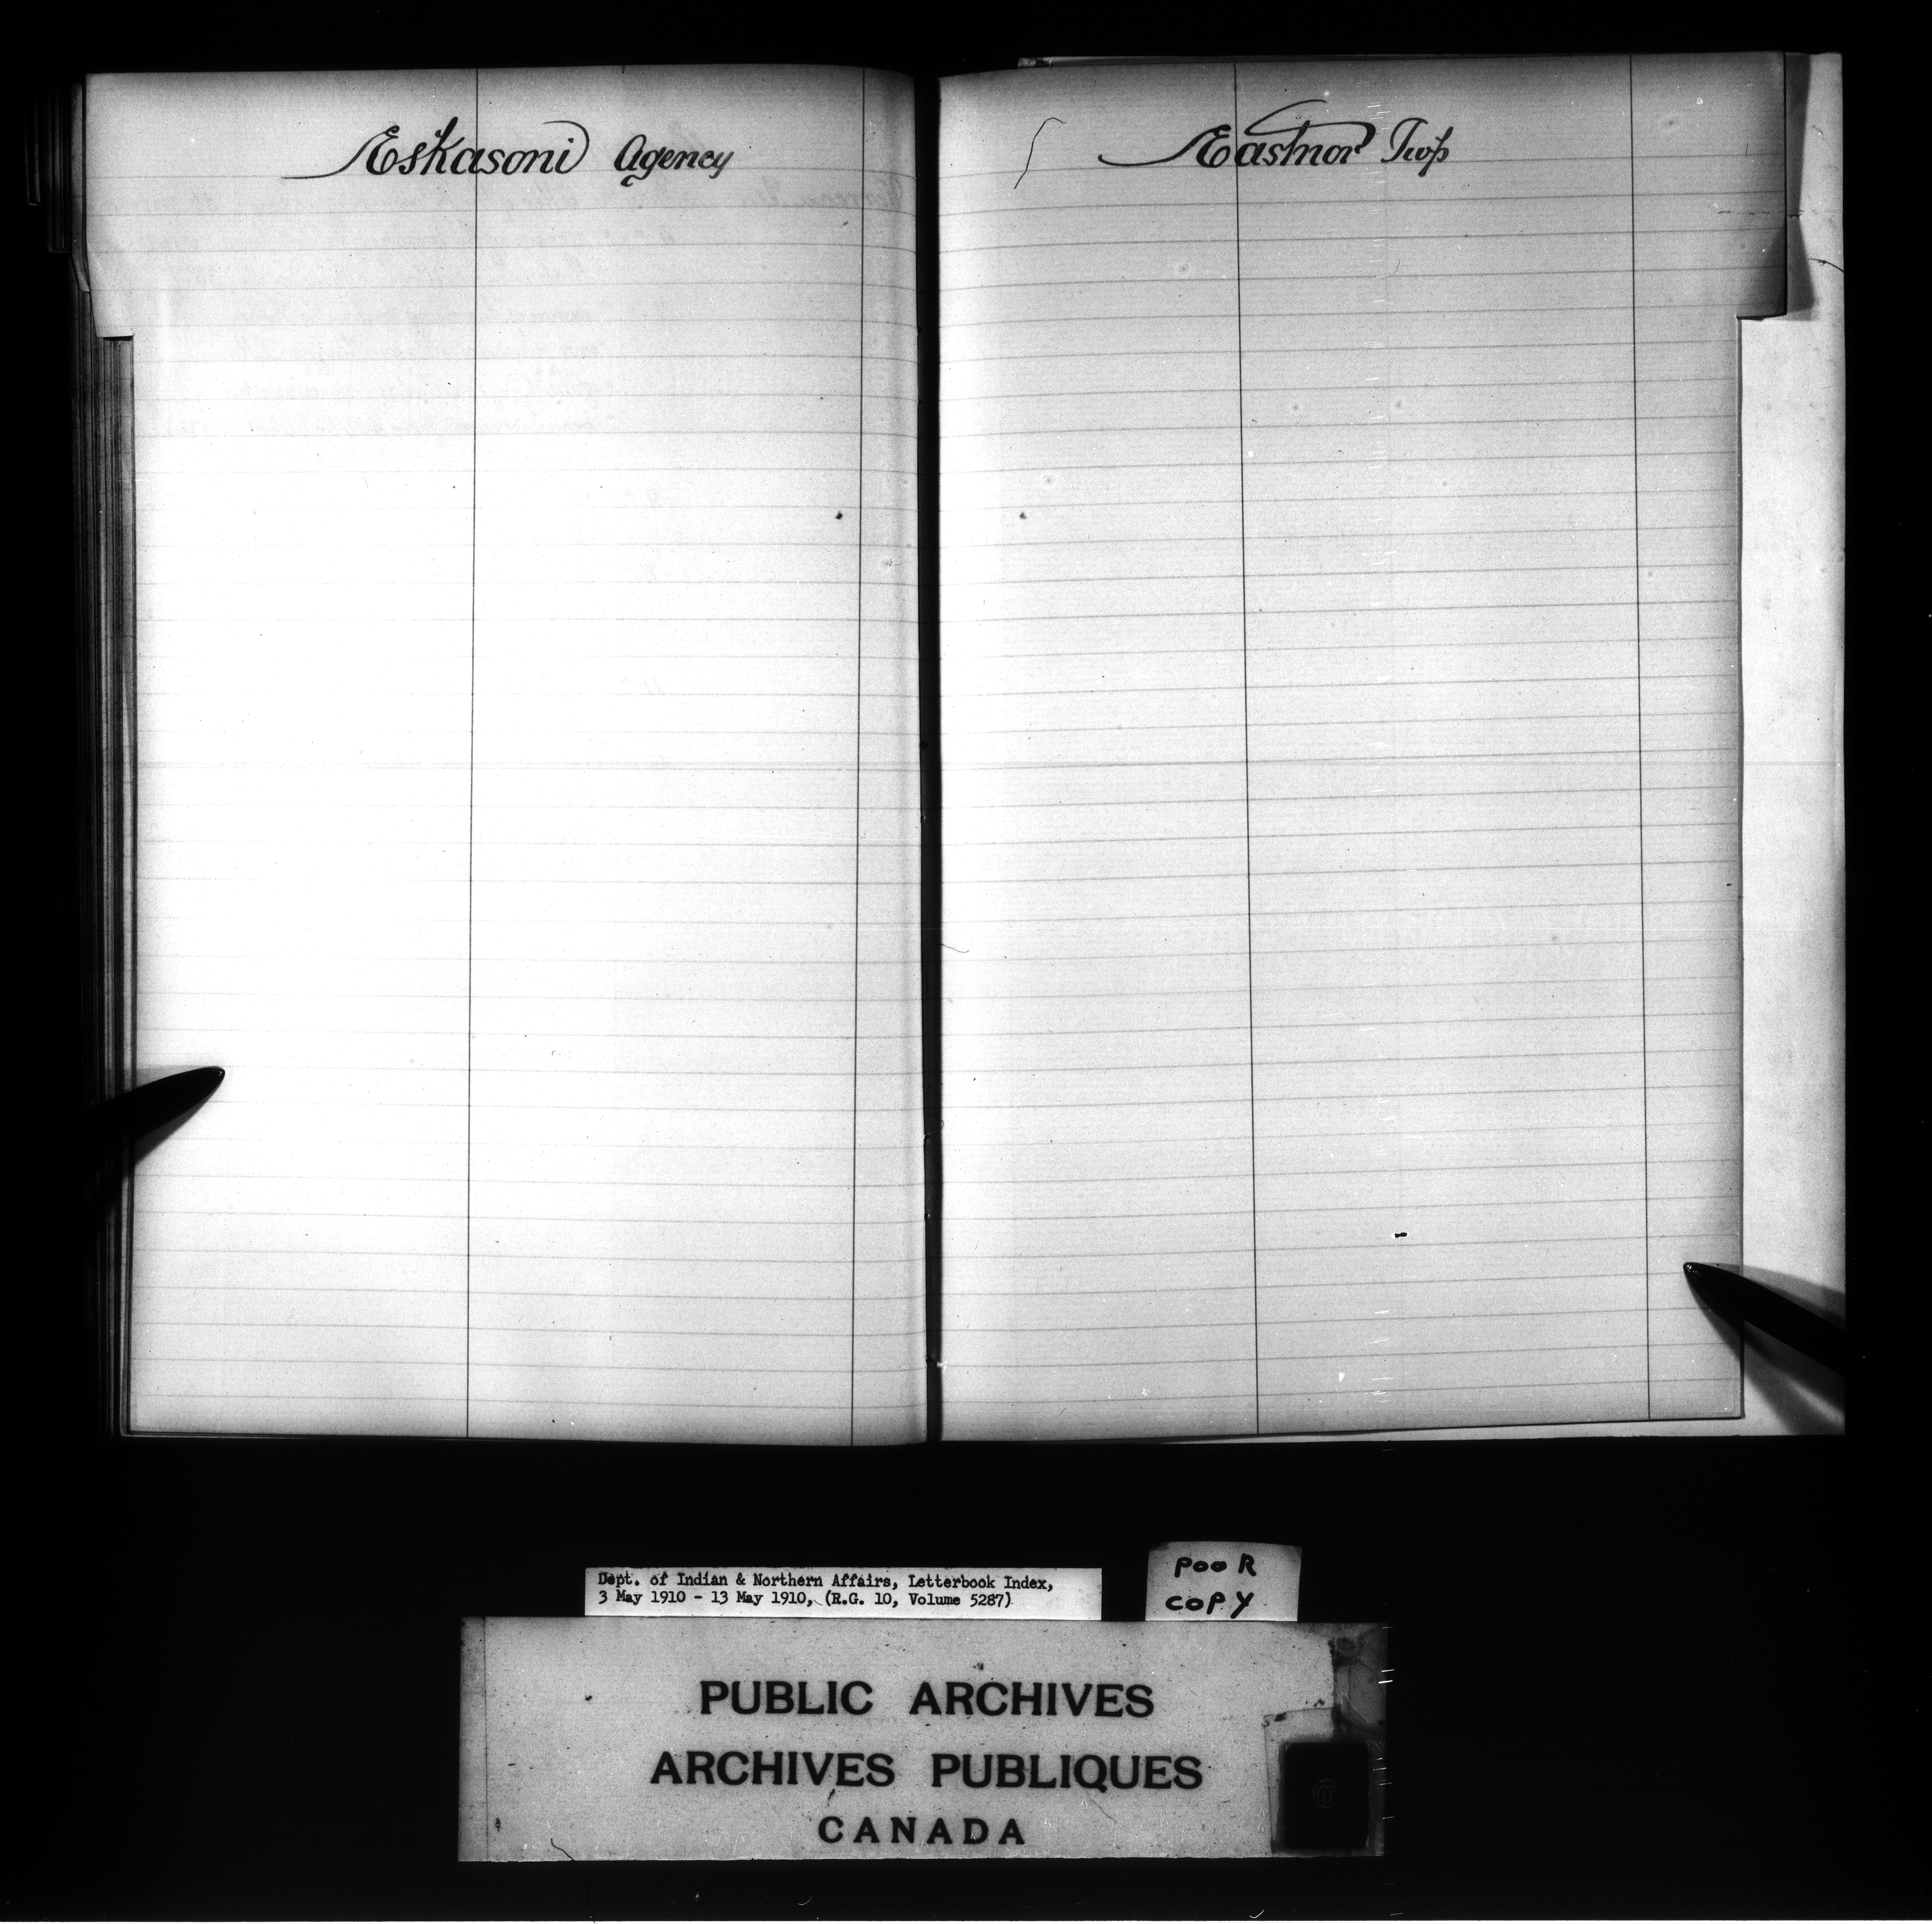 Eskasoni Agency
Eastnor Twp
Dept. of Indian & Northern Affairs, Letterbook Index,
3 May 1910 - 13 May 1910, (R.G. 10, Volume 5287)
POOR
COPY
PUBLIC ARCHIVES
ARCHIVES PUBLIQUES
CANADA